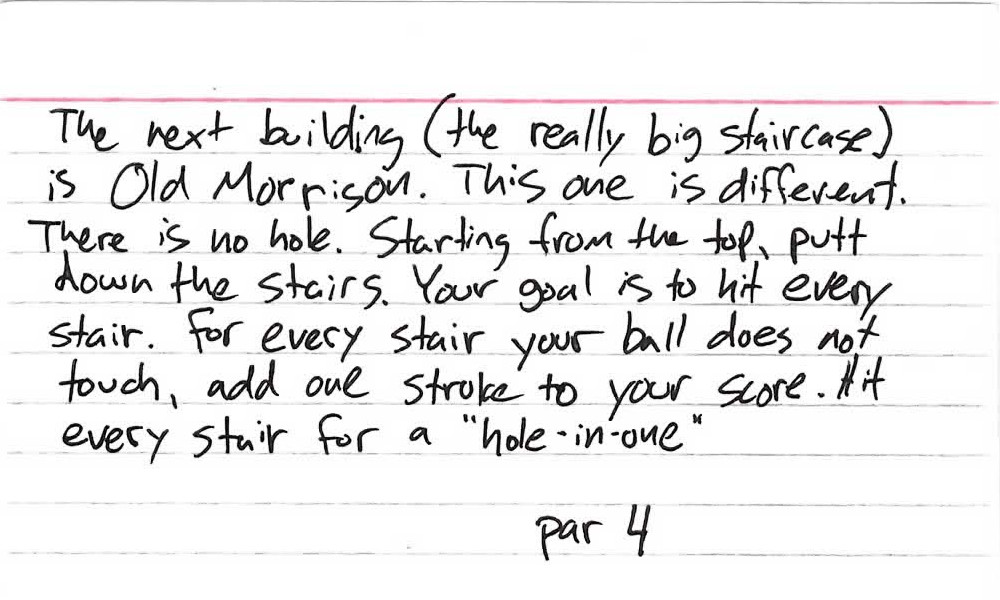 The next building (the really big staircase)
is Old Morrison. This one is different.
There is no hole. Starting from the top, putt
down the stairs. Your goal is to hit every
stair. For every stair your ball does not
touch, add one stroke to your score. Hit
every stair for a "hole-in-one"
par 4